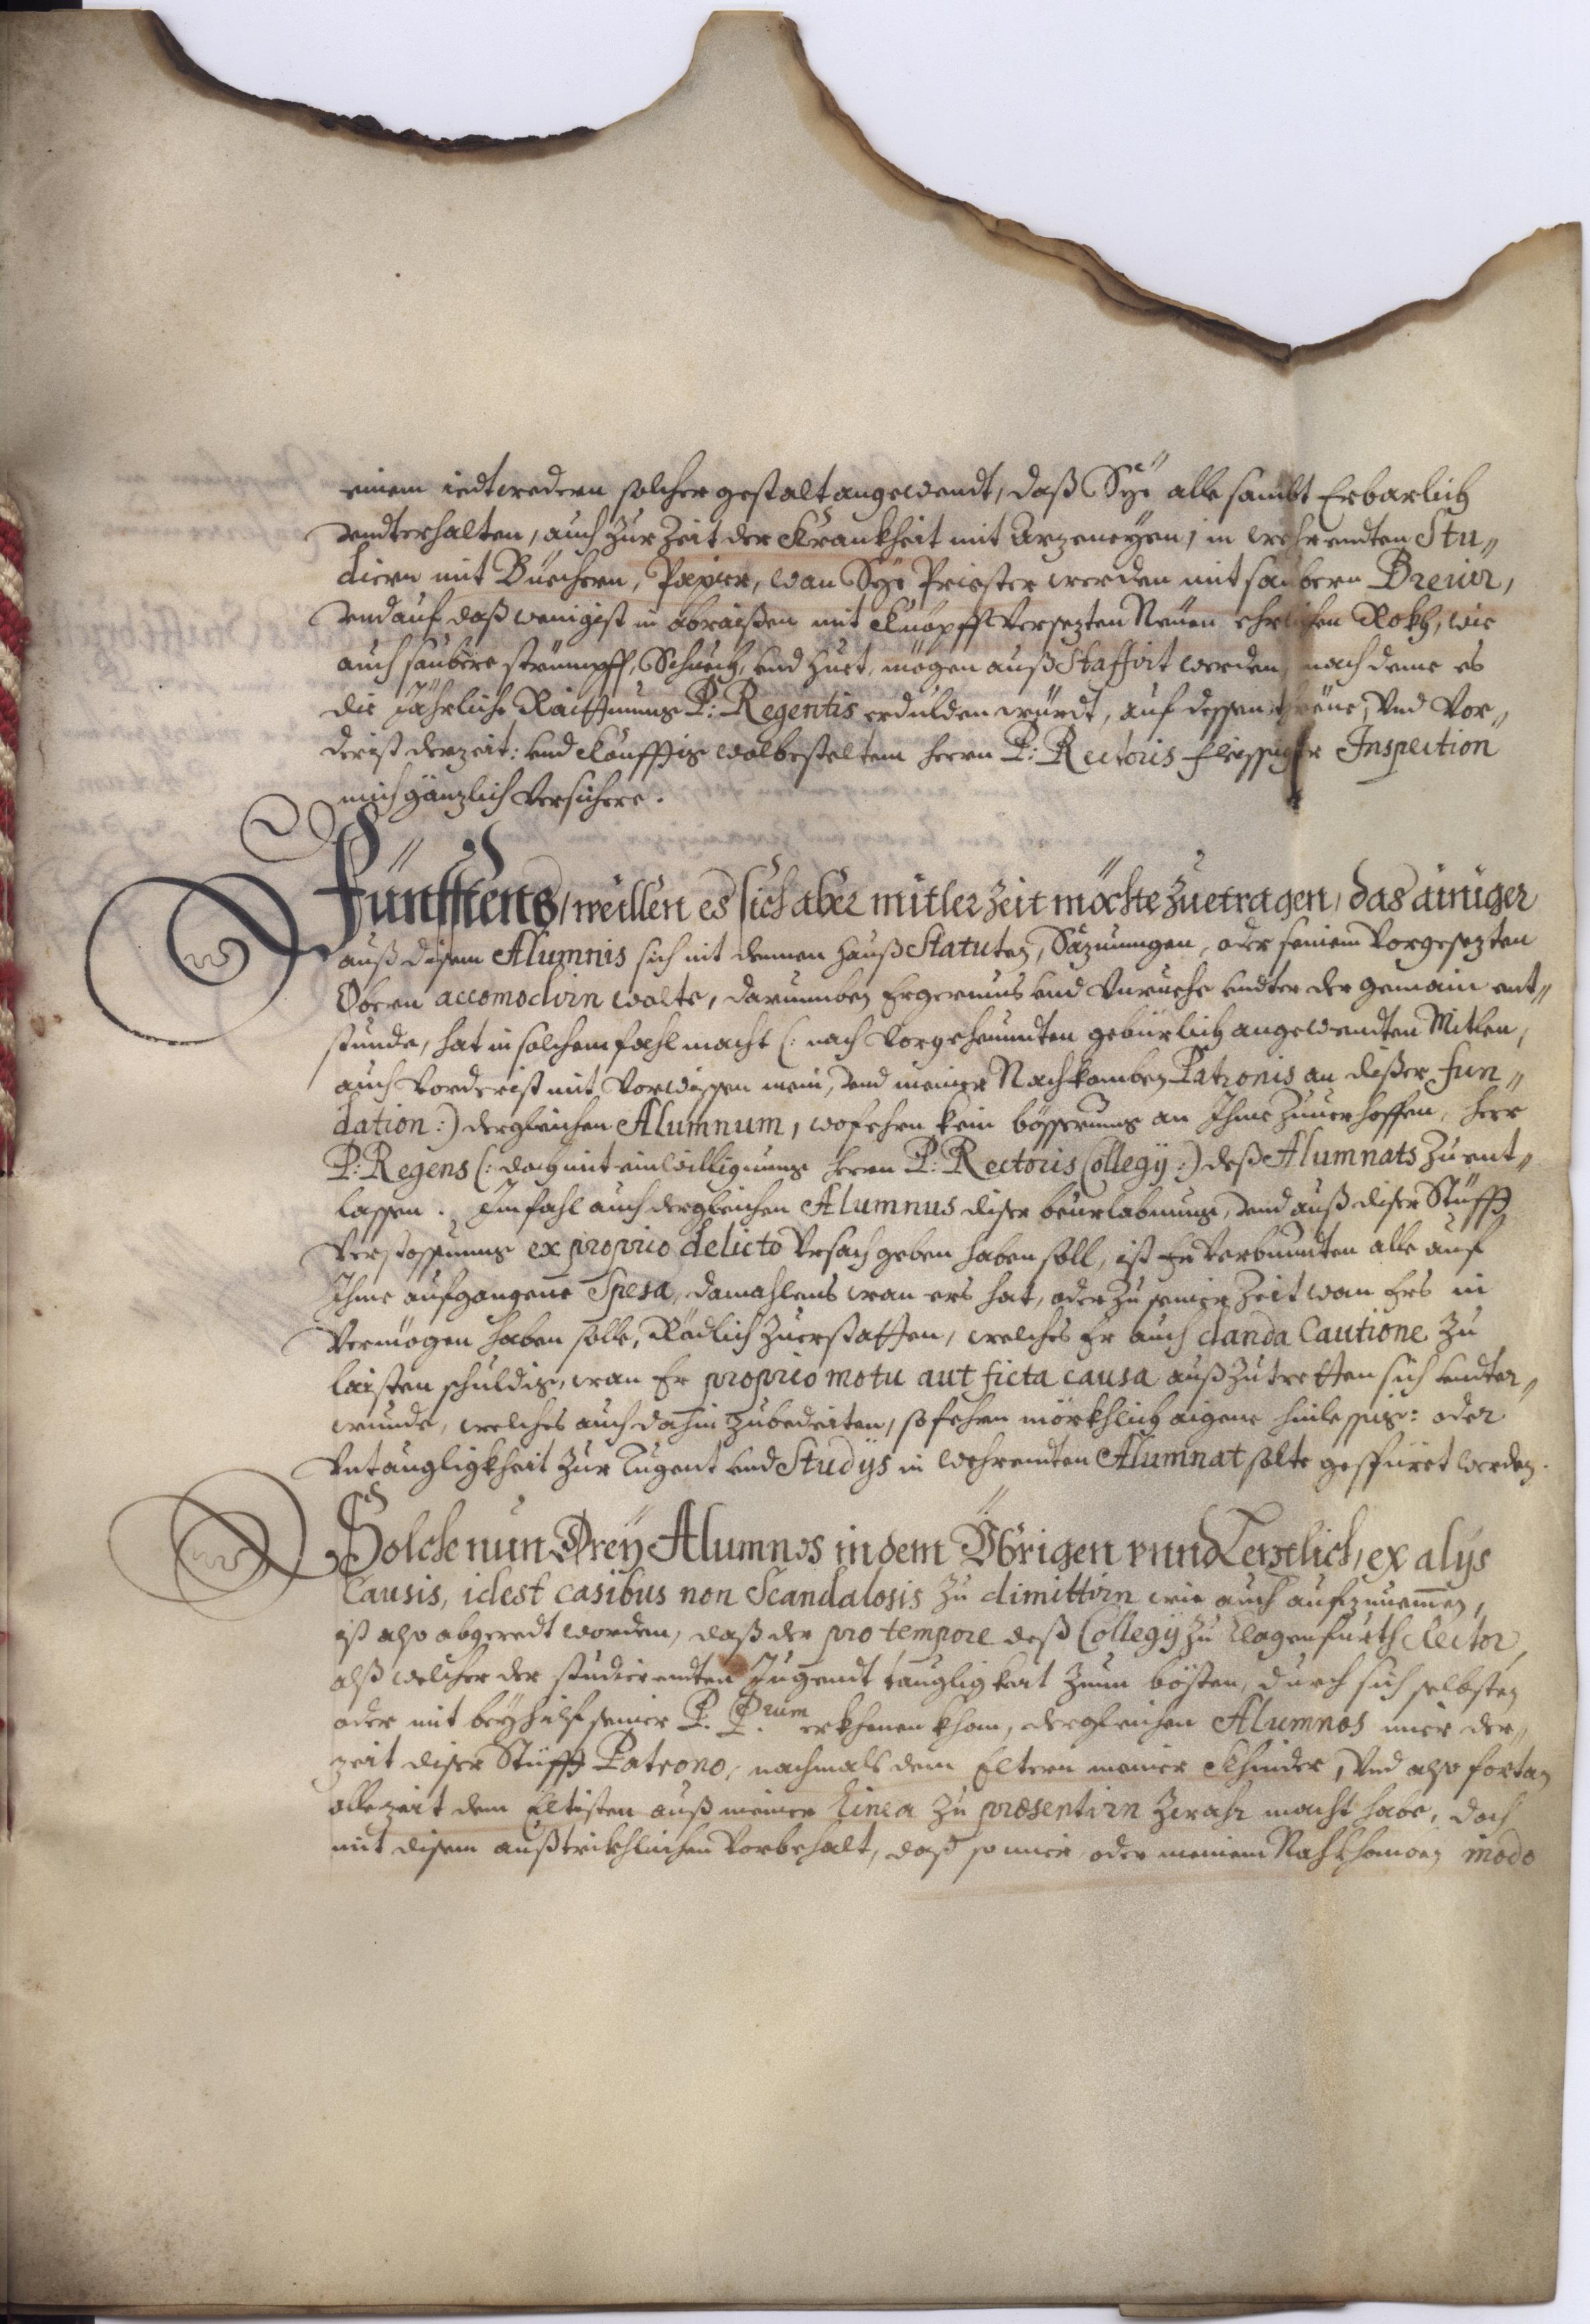 einem iedtwedern solcher gestalt angewendt, daß Sÿe alle sambt Erbarlich
vndterhalten, auch zur Zeit der Krankheit mit Arzeneÿen, in wehrendten Stu„
diern mit Büechern, Papier, wan Sÿe Priester werden mit saubern Breuier,
vnd auf daß wenigist in abraißen mit Knöpff versezten Neüen ehrlichen Rokh, wie
auch saubere strümpff, Schuech, vnd Huet, mögen auß Staffirt werden, nach deme es
die Jährliche Raittnung P: Regentis erdulden würdt, auf dessen threüe, Vnd Vor„
derist derzeit: vnd Künfftig wolbesteltem Herrn P: Rectoris fleissiger Inspection
mich gänzlich Versichere.
Fünfftens, weillen es sich aber mitler zeit möchte zuetragen, das ainiger
auß disem Alumnis sich nit dennen Hauß Statuten, Sazungen, oder seinem Vorgesezten
Obern accomodirn wolte, darumben Ergernus vnd Vnruehe vndter der gemain ent„
stunde, hat in solchem fahl macht (: nach Vorgehenndten gebürlich angewendten Mitlen,
auch Vorderist mit Vorwissen mein, vnd meiner Nachkomben Patronis an dißer Fun„
dation :) dergleichen Alumnum, wofehrn kein bösserung an Ihme zuuerhoffen, Herr
P: Regens (: doch mit einwilligung Herrn P: Rectoris Collegÿ :) deß Alumnats zu ent„
lassen. Im fahl auch dergleichen Alumnus diser beurlabnung, vnd auß diser Stüfft
Verstossung ex proprio delicto Vrsach geben haben soll, ist Er Verbundten alle auf
Ihme aufgangene Spesa, damahlens wan ers hat, oder zu seiner Zeit wan Ers in
Vermögen haben solle, Rödlich zuerstatten, welches Er auch danda Cautione zu
laisten schuldig, wan Er proprio motu aut ficta causa auß zu tretten sich vndter„
wunde, welches auch dahin zubedeiten, so fehrn mörkhlich aigene hinlessig: oder
Vntaugligkheit zur Tugent vnd Studÿs in wehrendten Alumnat solte gespüret werden.
Solche nun Dreÿ Alumnos in dem Übrigen vnnd Lerstlich, ex alÿs
Causis, idest casibus non Scandalosis zu dimittirn wie auch aufzunemen,
ist also abgeredt worden, daß der pro tempore deß Collegÿ zu Clagenfurth Rector,
alß welcher der studierendten Jugendt taugligkeit zum bösten, durch sich selbsten
oder mit beÿhilf seiner P. Prum erkhenen khan, dergleichen Alumnos mir der„
zeit diser Stüfft Patrono, nachmals dem Eltern meiner Khinder, Vnd also fortan
alle zeit dem Eltisten auß meiner Linea zu præsentirn zwahr macht habe, doch
mit disem außtrikhlichen Vorbehalt, daß so mir, oder meinem Nahkhomen modo